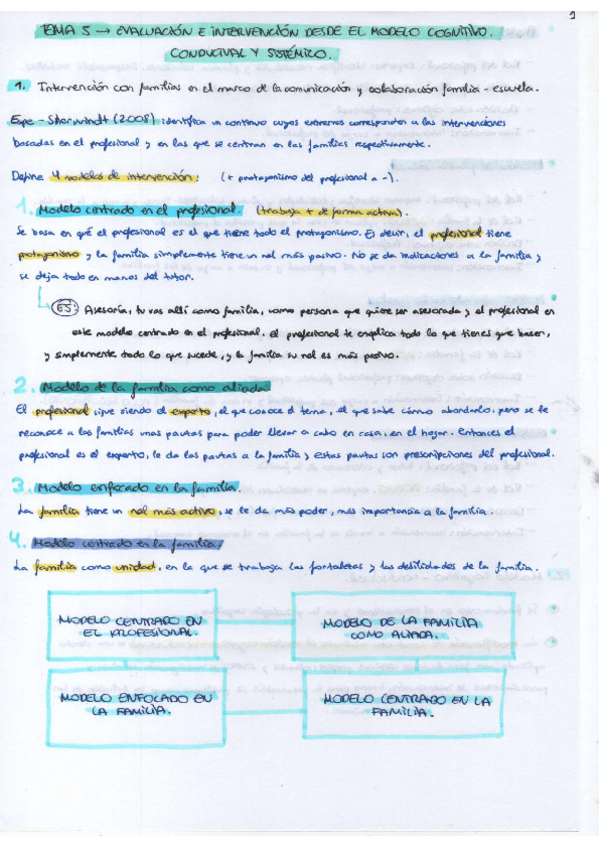 1
TEMA 5 → EVALUACIÓN E INTERVENCIÓN DESDE EL MODELO COGNITIVO.
CONDUCTUAL Y SISTÉMICO.
1. Intervención con familias en el marco de la comunicación y colaboración familia - escuela.
(2008) identifica un continuo cuyos extremos corresponden a las intervenciones
basadas en el profesional y en las que se centran en las familias respectivamente.
Define 4 modelos de intervención: (+ protagonismo del profesional a -).
1. Modelo centrado en el profesional. (trabaja + de forma activa).
Se basa en qué el profesional es el que tiene todo el protagonismo. Es decir, el profesional tiene
protagonismo y la familia simplemente tiene un rol más pasivo. No se da indicaciones a la familia y
se deja todo en manos del tutor.
Asesoría, tu vas allí como familia, como persona que quiere ser asesorada y el profesional en
este modelo centrado en el profesional, el profesional te explica todo lo que tienes que hacer,
y simplemente todo lo que sucede, y la familia su rol es más pasivo.
2. Modelo de la familia como aliada
El profesional sigue siendo el experto, el que conoce el tema, el que sabe cómo abordarlo, pero se le
reconoce a las familias unas pautas para poder llevar a cabo en casa, en el hogar. Entonces el
profesional es el experto, le da las pautas a la familia y estas pautas son prescripciones del profesional.
3. Modelo enfocado en la familia.
La familia tiene un rol más activo, se le da más poder, más importancia a la familia.
4. Modelo centrado en la familia.
La familia como unidad, en la que se trabaja las fortalezas y las debilidades de la familia.
MODELO CENTRADO EN
EL PROFESIONAL.
MODELO DE LA FAMILIA
COMO ALIADA.
MODELO ENFOCADO EN
LA FAMILIA.
MODELO CENTRADO EN LA
FAMILIA.